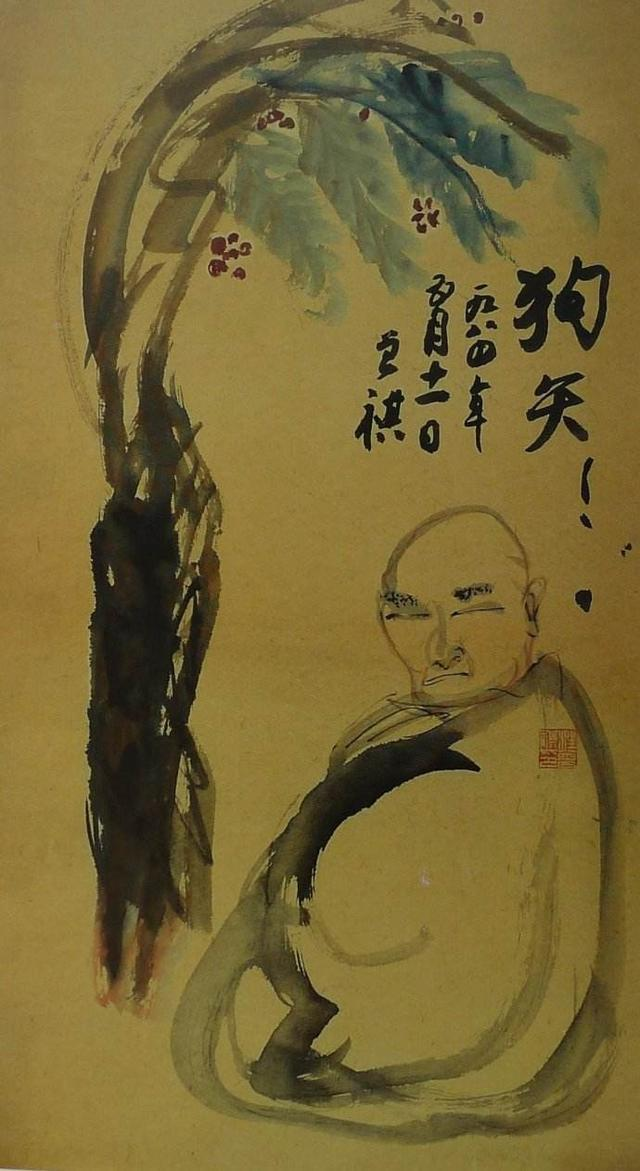 狗矢
一九八四年
五月十一日
曾祺